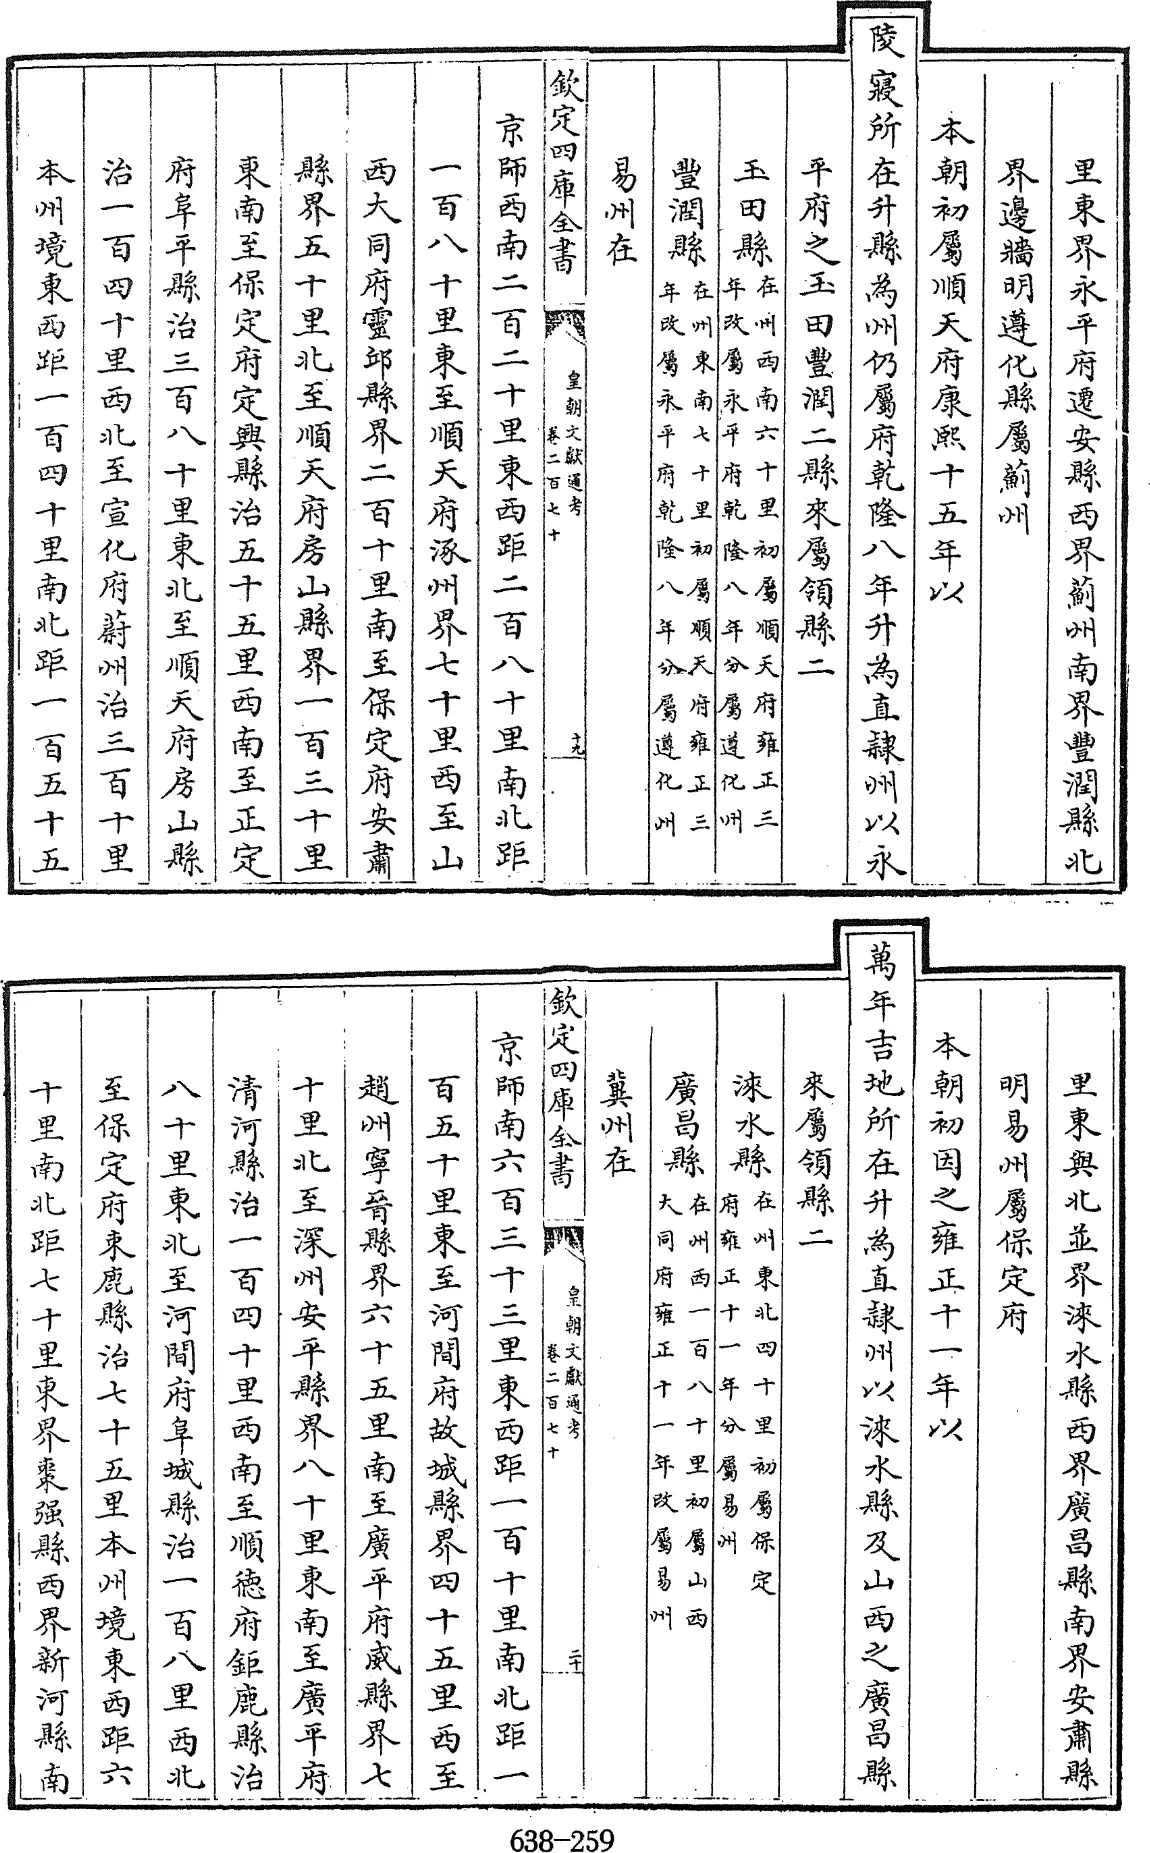 里東界永平府遷安縣西界薊州南界豐潤縣北
界邊牆明遵化縣屬薊州
本朝初屬順天府康熙十五年以
陵寢所在升縣為州仍屬府乾隆八年升為直隸州以永
平府之玉田豐潤二縣來屬領縣二
玉田縣在州西南六十里初屬順天府雍正三
年改屬永平府乾隆八年分屬遵化州
豐潤縣在州東南七十里初屬順天府雍正三
年改屬永平府乾隆八年分屬遵化州
易州在
欽定四庫全書
皇朝文獻通考
卷二百七十
十九
京師西南二百二十里東西距二百八十里南北距
一百八十里東至順天府涿州界七十里西至山
西大同府靈邱縣界二百十里南至保定府安肅
縣界五十里北至順天府房山縣界一百三十里
東南至保定府定興縣治五十五里西南至正定
府阜平縣治三百八十里東北至順天府房山縣
治一百四十里西北至宣化府蔚州治三百十里
本州境東西距一百四十里南北距一百五十五
里東與北並界淶水縣西界廣昌縣南界安肅縣
明易州屬保定府
本朝初因之雍正十一年以
萬年吉地所在升為直隸州以淶水縣及山西之廣昌縣
來屬領縣二
淶水縣在州東北四十里初屬保定
府雍正十一年分屬易州
廣昌縣在州西一百八十里初屬山西
大同府雍正十一年改屬易州
冀州在
欽定四庫全書
皇朝文獻通考
卷二百七十
二十
京師南六百三十三里東西距一百十里南北距一
百五十里東至河間府故城縣界四十五里西至
趙州寧晉縣界六十五里南至廣平府威縣界七
十里北至深州安平縣界八十里東南至廣平府
清河縣治一百四十里西南至順德府鉅鹿縣治
八十里東北至河間府阜城縣治一百八里西北
至保定府束鹿縣治七十五里本州境東西距六
十里南北距七十里東界棗强縣西界新河縣南
638-259